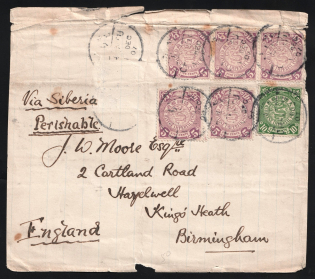 Via Siberia
Perishable
J. W. Moore Esqre
2 Cartland Road
Hazelwell
Kings Heath
Birmingham
England